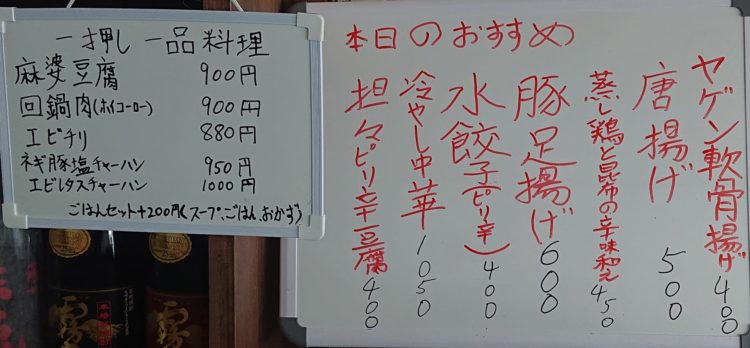 一押し 一品料理
麻婆豆腐 900円
回鍋肉(ホイコーロー) 900円
エビチリ 880円
ネギ豚塩チャーハン 950円
エビレタスチャーハン 1000円
ごはんセット+200円(スープ、ごはん、おかず)
本日のおすすめ
ヤゲン軟骨揚げ 400
唐揚げ 500
蒸し鶏と昆布の辛味和え 450
豚足揚げ 600
水餃子(ピリ辛) 400
冷やし中華 1050
担々ピリ辛豆腐 400
霧
本格焼酎
霧